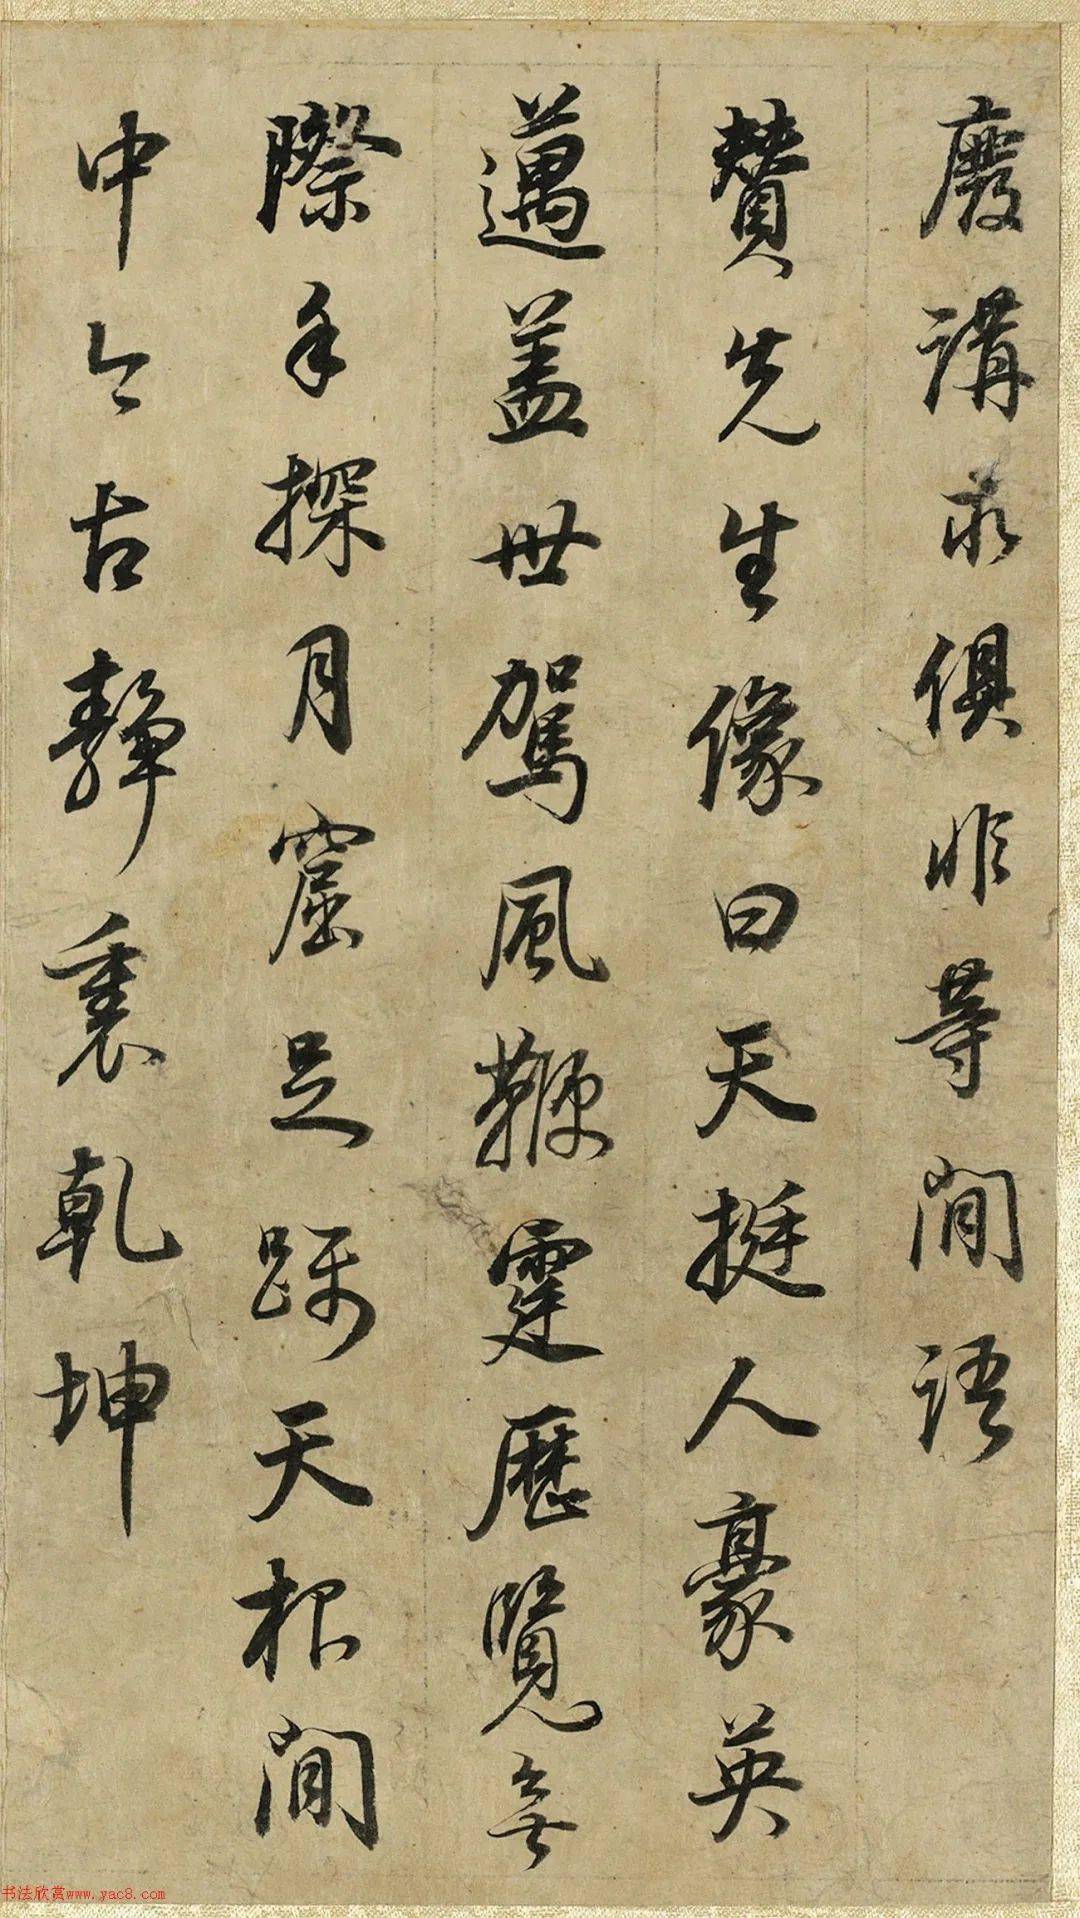 廢講求俱非等閒語
賛先生像曰天挺人豪英
邁盖世駕風鞭霆歷覽無
際手探月窟足躡天根閒
中今古靜裏乾坤
书法欣赏www.yac8.com